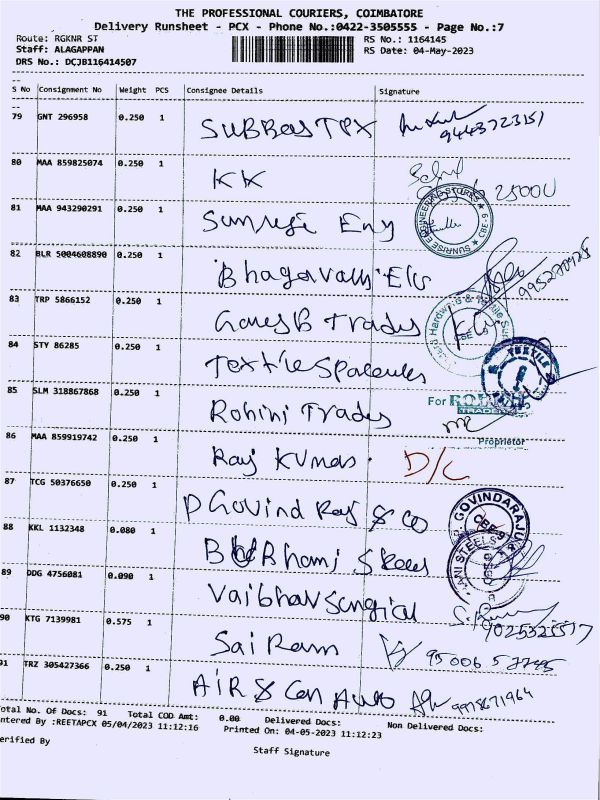 THE PROFESSIONAL COURIERS, COIMBATORE
Delivery Runsheet - PCX - Phone No.:0422-3505555 - Page No.:7
Route: RGKNR ST RS No.: 1164145
Staff: ALAGAPPAN RS Date: 04-May-2023
DRS No.: DCJB116414507
S No Consignment No Weight PCS Consignee Details Signature
79 GNT 296958 0.250 1 SUBBas TPX 9443723151
80 MAA 859825074 0.250 1 KK 25000
81 MAA 943290291 0.250 1 Sunrise Eng SUNRISE ENGINEERING STORES CBE-9
82 BLR 5004608890 0.250 1 Bhagavathi
83 TRP 5866152 0.250 1 Trades Hardware &
84 STY 86285 0.250 1 Textile TEXTILE
85 SLM 318867868 0.250 1 Rohini Trades For
Proprietor
86 MAA 859919742 0.250 1 Raj Kumar D/C
87 TCG 50376650 0.250 1 P Govind Raj & Co P. GOVINDARAJU & CBE-9
88 KKL 1132348 0.080 1 STEELS
89 DDG 4756081 0.090 1 Vaibhav Surgical
90 KTG 7139981 0.575 1 Sai Ram 95006
91 TRZ 305427366 0.250 1 AIR & Car Auto
Total No. Of Docs: 91 Total COD Amt: 0.00 Delivered Docs: Non Delivered Docs:
ntered By :REETAPCX 05/04/2023 11:12:16 Printed On: 04-05-2023 11:12:23
erified By
Staff Signature